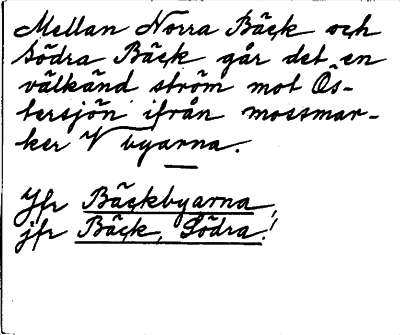 Mellan Norra Bäck och
Södra Bäck går det en
välkänd ström mot Ös-
tersjön ifrån mossmar-
ker V byarna.
—
Jfr Bäckbyarna,
jfr Bäck, Södra!